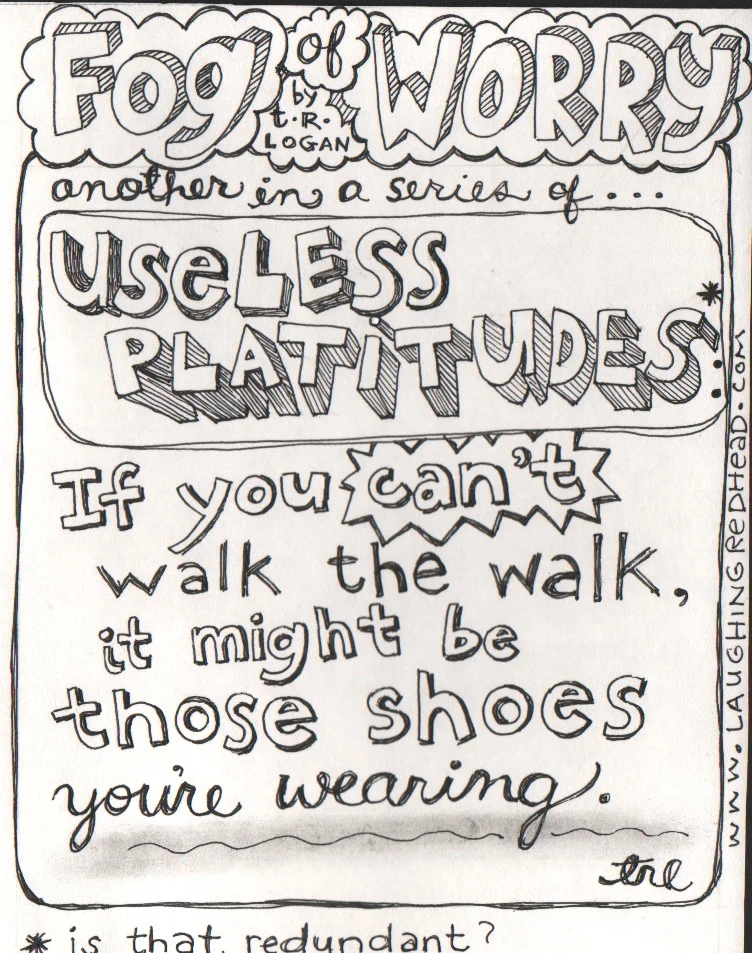 Fog of WORRY
by
t.R.
LOGAN
another in a series of...
USeLESS
PLATiTUDES*:
If you can't
walk the walk,
it might be
those shoes
you're wearing.
trl
* is that redundant?
www.LAUGHINGReDHeaD.COM